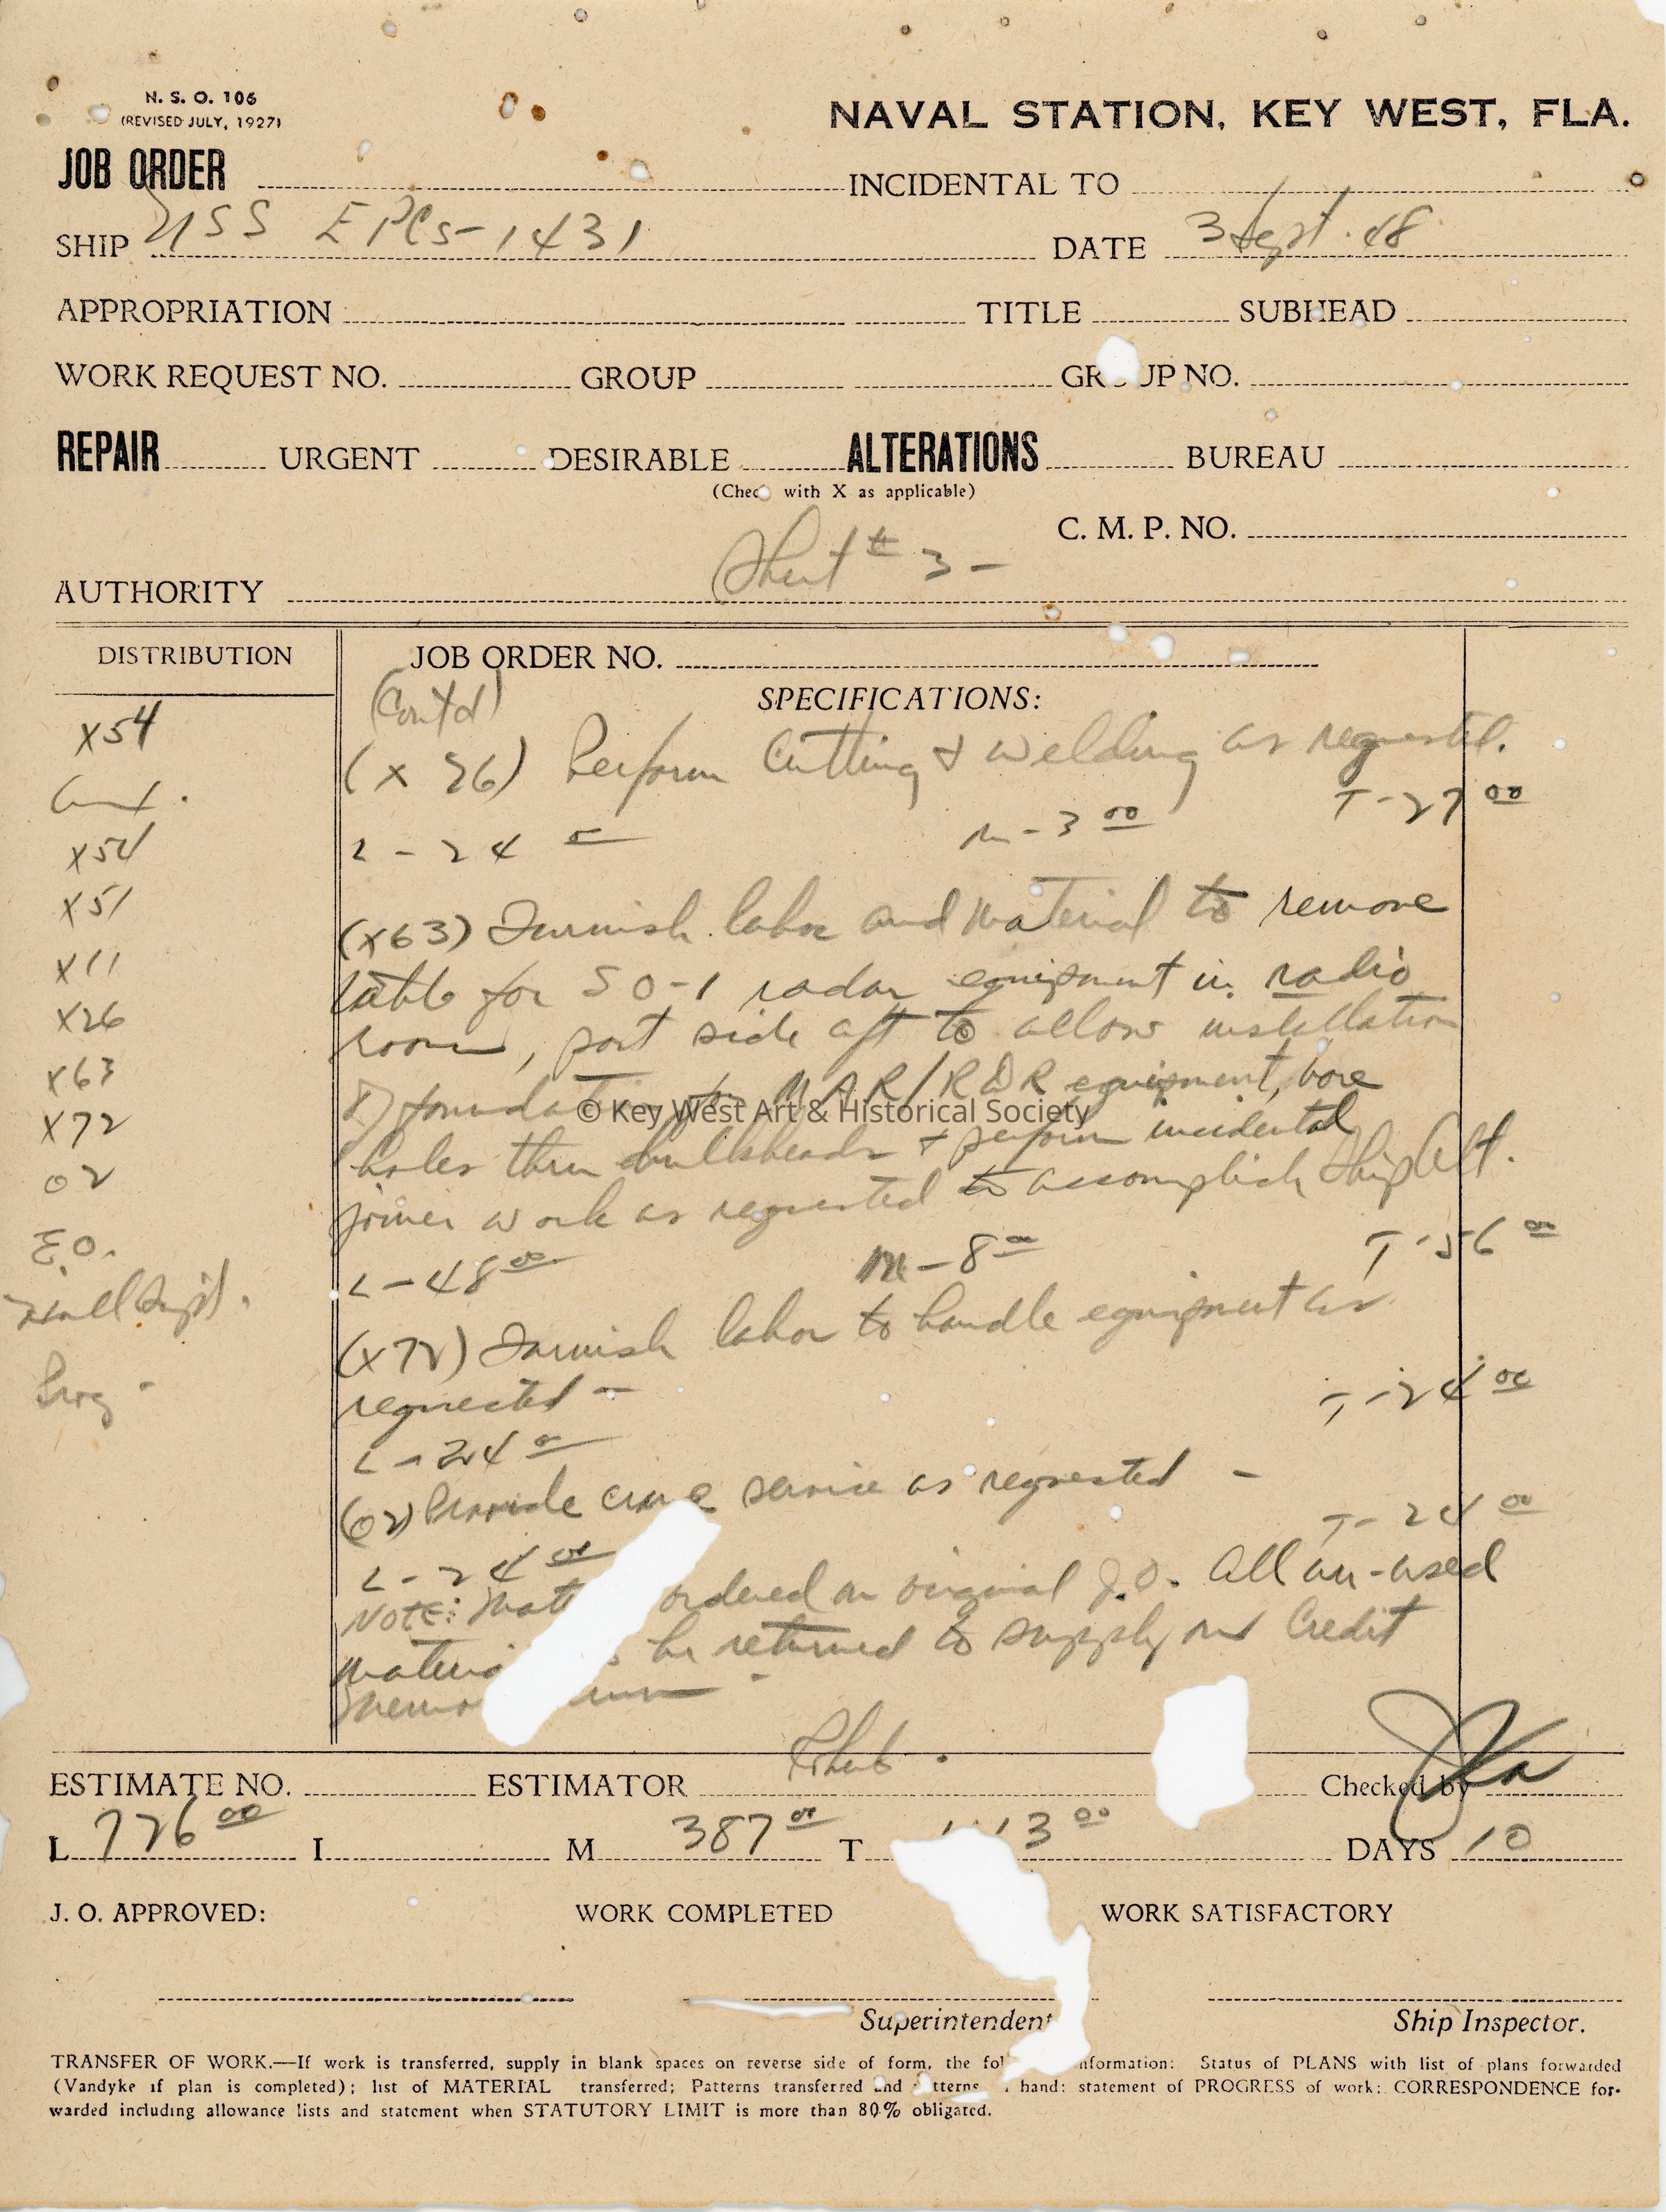 N. S. O. 106
(REVISED JULY, 1927)
NAVAL STATION, KEY WEST, FLA.
JOB ORDER INCIDENTAL TO
SHIP USS EPCS-1431 DATE 3 Sept. 48
APPROPRIATION TITLE SUBHEAD
WORK REQUEST NO. GROUP GR UP NO.
REPAIR URGENT DESIRABLE ALTERATIONS BUREAU
(Check with X as applicable)
C. M. P. NO.
Sheet # 3 -
AUTHORITY
DISTRIBUTION
X54
X54
X51
X11
X26
X63
X72
02
E.O.
Prog -
JOB ORDER NO.
(Cont'd)
SPECIFICATIONS:
(X 26) Perform Cutting & welding as requested.
L - 24 00 M - 3 00 T - 27 00
(X63) Furnish labor and material to remove
table for SO-1 radar equipment in radio
room, port side aft to allow installation
of foundation for MAR/RDR equipment, bore
holes thru bulkheads & perform incidental
joiner work as requested to accomplish ShipAlt.
L - 48 00 M - 8 00 T - 56 00
(X72) Furnish labor to handle equipment as
requested - T - 24 00
L - 24 00
(02) Provide crane service as requested -
T - 24 00
L - 24 00
NOTE: Mat ordered on original J.O. All un-used
materia be returned to supply and Credit
Memo
© Key West Art & Historical Society
ESTIMATE NO. ESTIMATOR Checked by
L 726 00 I M 387 00 T 1113 00 DAYS 10
J. O. APPROVED: WORK COMPLETED WORK SATISFACTORY
Superintendent Ship Inspector.
TRANSFER OF WORK.—If work is transferred, supply in blank spaces on reverse side of form, the fol nformation: Status of PLANS with list of plans forwarded
(Vandyke if plan is completed); list of MATERIAL transferred; Patterns transferred and atterns hand: statement of PROGRESS of work: CORRESPONDENCE for-
warded including allowance lists and statement when STATUTORY LIMIT is more than 80% obligated.